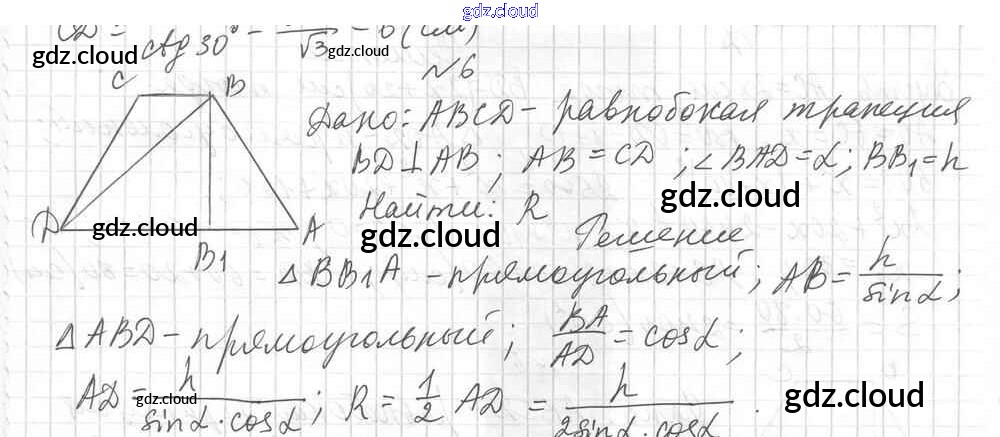 gdz.cloud
CD = ctg 30° = √3 = 6 (см)
gdz.cloud
gdz.cloud
№6
C B
Дано: ABCD - равнобокая трапеция
BD ⊥ AB ; AB = CD ; ∠BAD = α ; BB₁ = h
gdz.cloud
Найти: R
D gdz.cloud A
gdz.cloud
B₁
Решение
△BB₁A - прямоугольный ; AB = h / sin α ;
△ABD - прямоугольный ; BA / AD = cos α ;
AD = h / sin α · cos α ; R = 1/2 AD = h / 2 sin α · cos α .
gdz.cloud
gdz.cloud